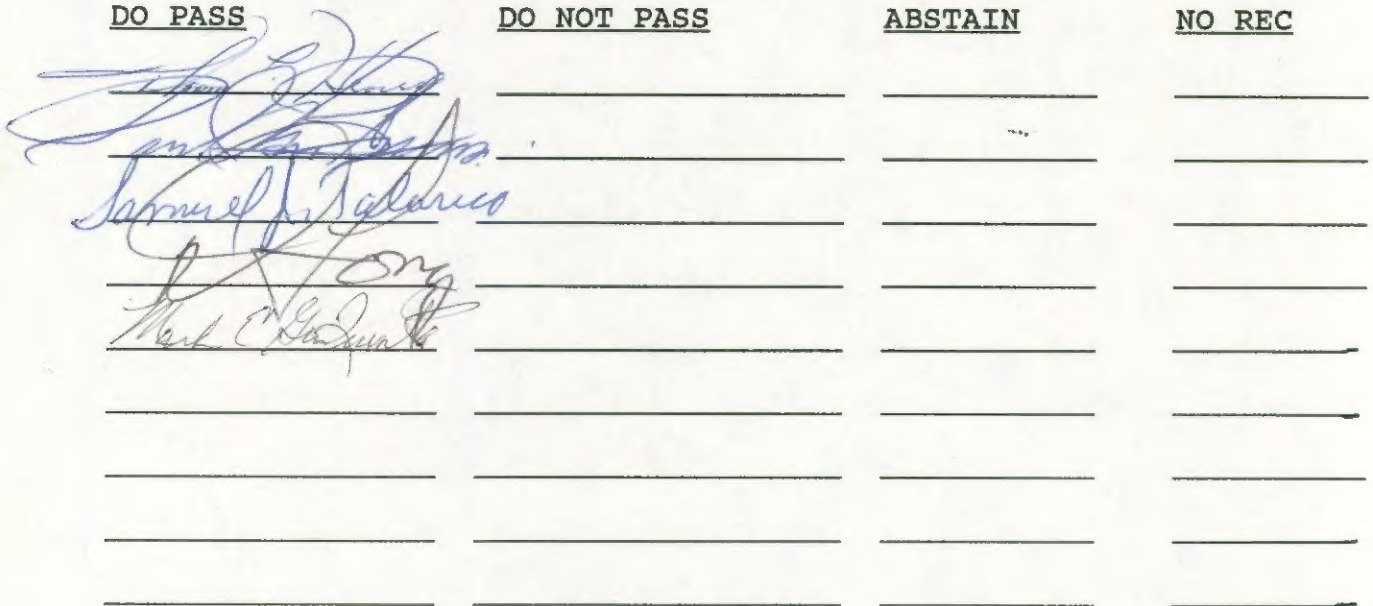 DO PASS DO NOT PASS ABSTAIN NO REC
Samuel J. Talarico
Long
Mark E. GiaQuinta